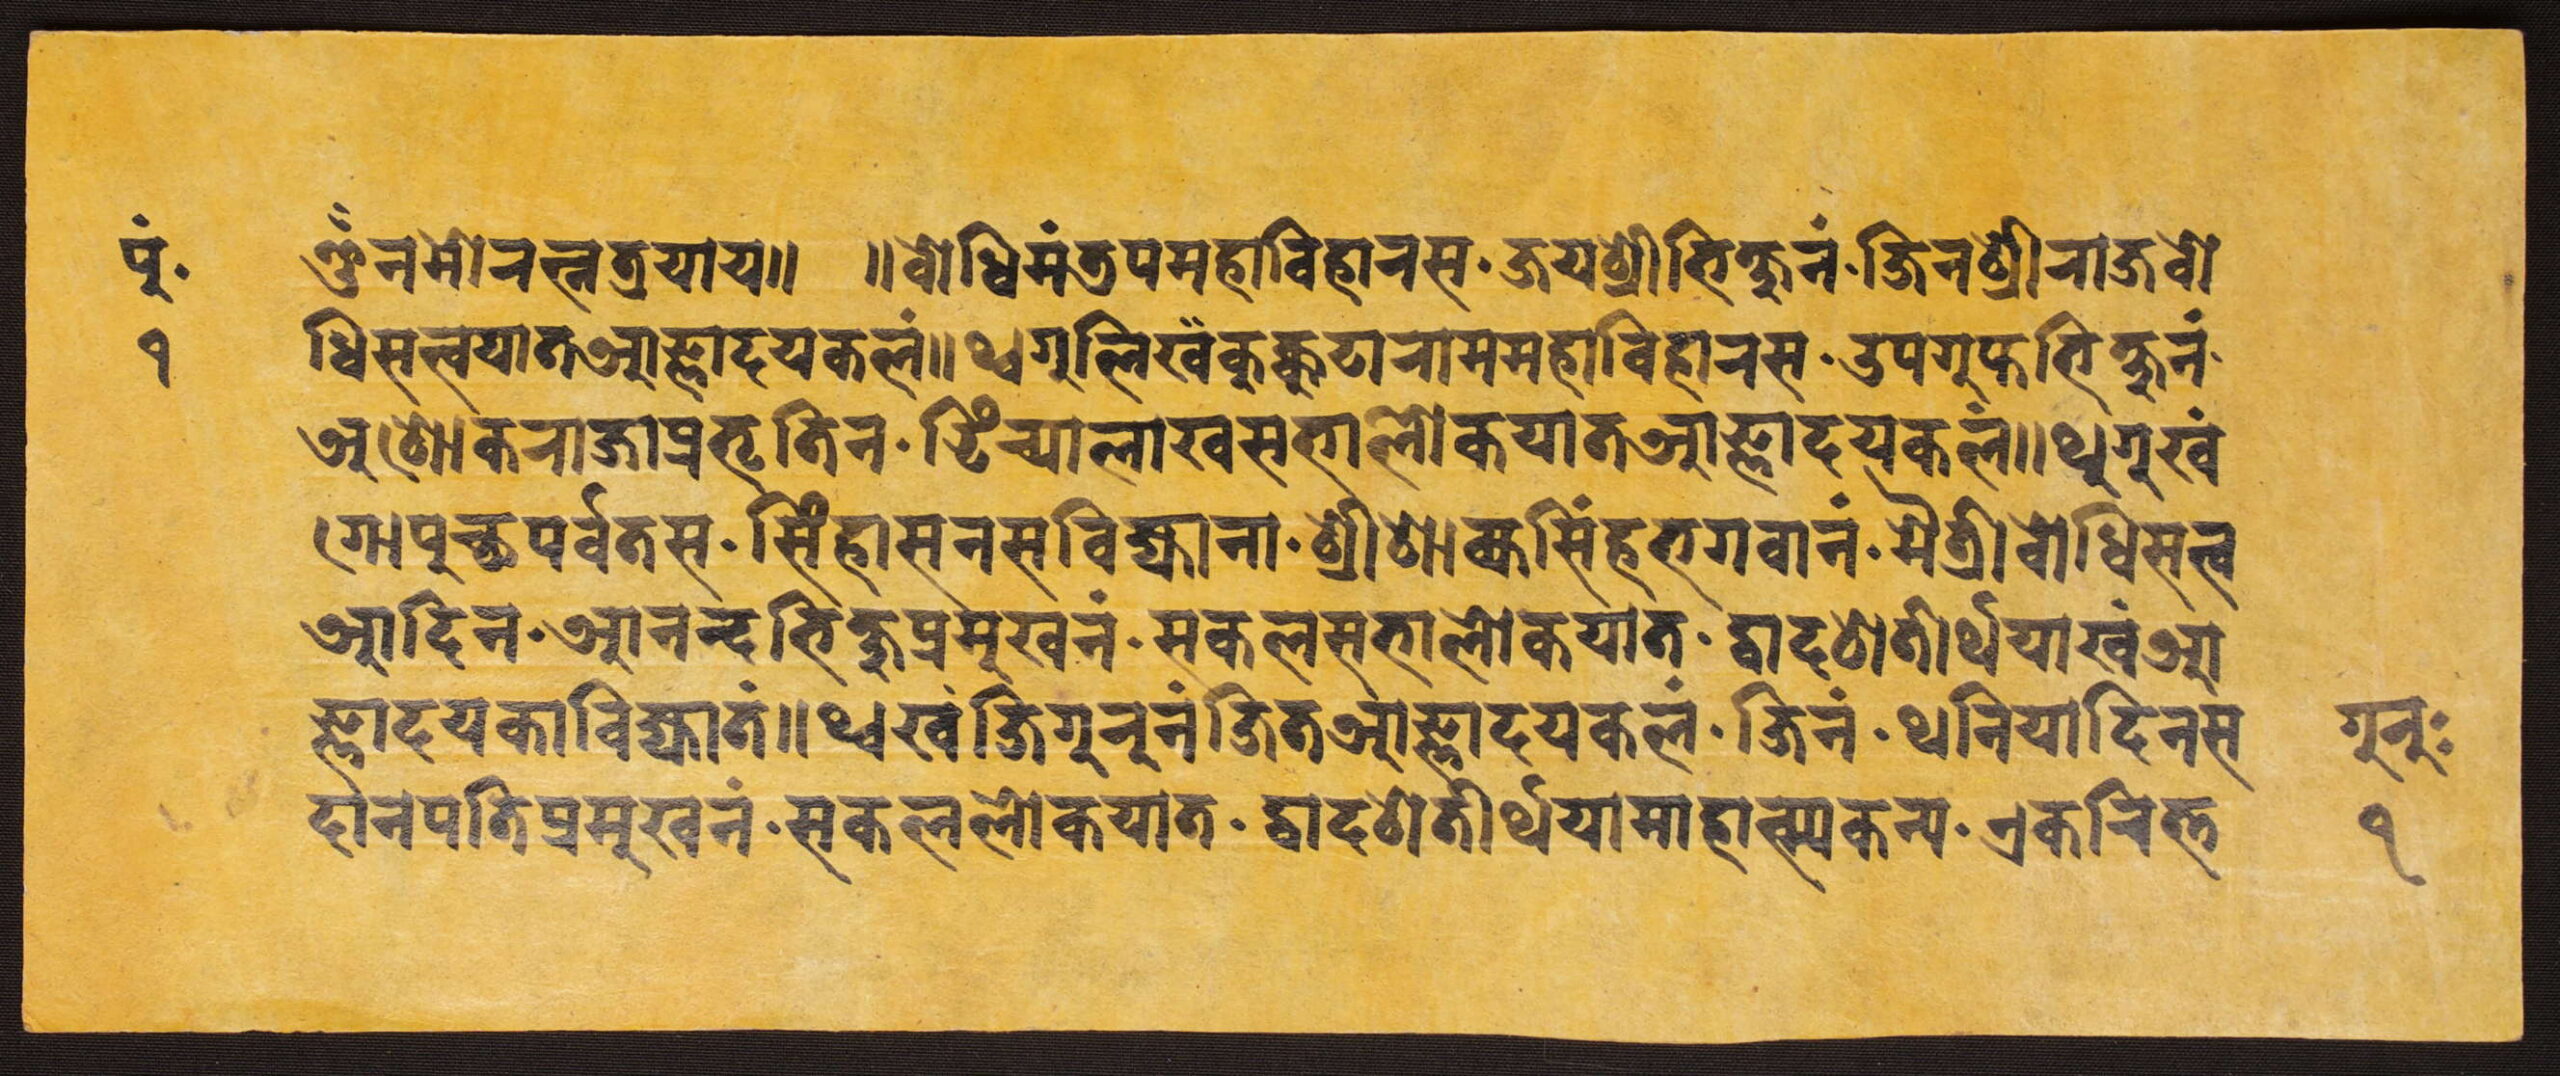 पुं॰
१
ॐ नमो रत्नत्रयाय॥ ॥बोधिमंतपमहाविहारस॰जयश्रीभिक्षुनं॰जिनश्रीराजबो
धिसत्वयात आज्ञादयकलं॥थ्वगुलिखँ कुक्कुटाराममहाविहारस॰उपगुप्तभिक्षुनं॰
अशोकराजाप्रभृतिन॰ झिंच्यालाखसभालोकयात आज्ञादयकलं॥थुगुखं
गोपुच्छपर्वतस॰सिंहासनसविज्याना॰श्रीशाक्यसिंहभगवानं॰मैत्रीबोधिसत्व
आदिन॰आनन्दभिक्षुप्रमुखनं॰सकलसभालोकयात॰द्वादशतीर्थयाखं आ
ज्ञादयकाविज्यातं॥थ्वखं जिगुरुनं जित आज्ञादयकलं॰जिनं॰थनियादिनस
दानपतिप्रमुखनं॰सकललोकयात॰द्वादशतीर्थयामाहात्म्यकन्य॰एकचित्त
गुरुः
१